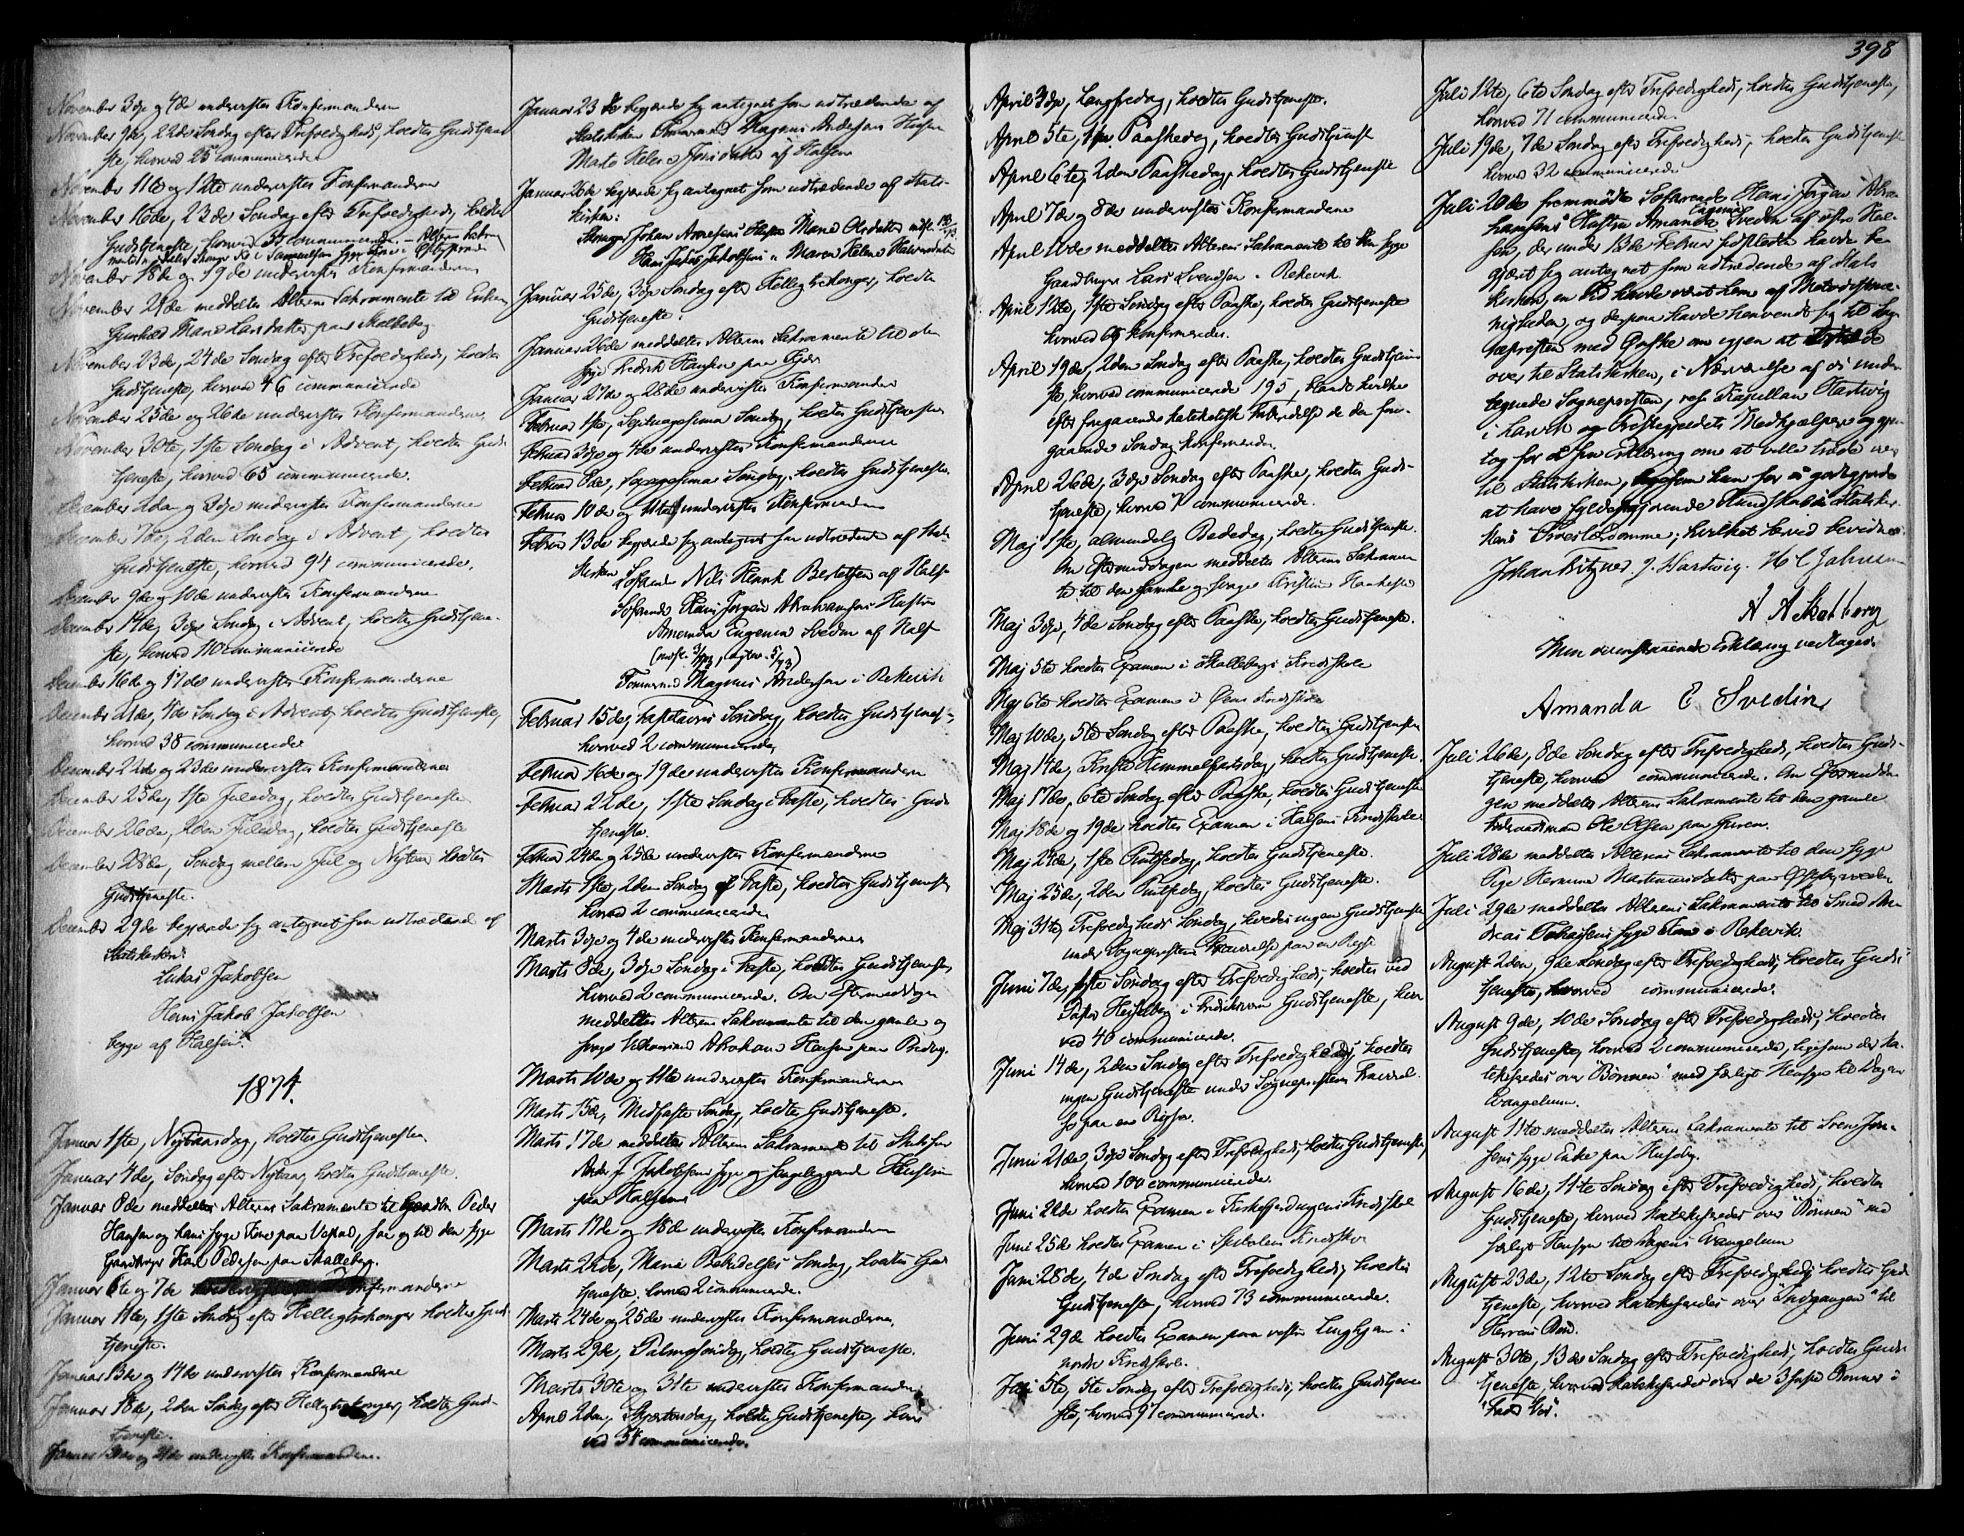 398
November 3die og 4de undervistes Konfirmanderne
November 9de, 22de Søndag efter Trefoldighed, holdtes Gudstjene-
ste, hvorved 25 communicerede
November 11te og 12te undervistes Konfirmanderne
November 16de, 23de Søndag efter Trefoldighed, holdtes
Gudstjeneste, hvorved 35 communicerede
November 18de og 19de undervistes Konfirmanderne
November 21de meddeltes Alterens Sakramente til Enken
Gunhild Marie Larsdatter paa Skalleberg
November 23de, 24de Søndag efter Trefoldighed, holdtes
Gudstjeneste, hvorved 46 communicerede
November 25de og 26de undervistes Konfirmanderne
November 30te, 1ste Søndag i Advent, holdtes Guds-
tjeneste, hvorved 65 communicerede.
December 2den og 3die undervistes Konfirmanderne
December 7de, 2den Søndag i Advent, holdtes
Gudstjeneste, hvorved 94 communicerede.
December 9de og 10de undervistes Konfirmanderne
December 14de, 3die Søndag i Advent, holdtes Gudstjene-
ste, hvorved 110 communicerede
December 16de og 17de undervistes Konfirmanderne
December 21de, 4de Søndag i Advent, holdtes Gudstjeneste,
hvorved 38 communicerede
December 22de og 23de undervistes Konfirmanderne
December 25de, 1ste Juledag, holdtes Gudstjeneste
December 26de, 2den Juledag, holdtes Gudstjeneste
December 28de, Søndag mellem Jul og Nytaar holdtes
Gudstjeneste.
December 29de begjærede sig antegnet som udtrædende af
Statskirken:
Lukas Jakobsen
Hans Jakob Jakobsen
begge af Halsen.
1874.
Januar 1ste, Nytaarsdag, holdtes Gudstjeneste.
Januar 4de, Søndag efter Nytaar, holdtes Gudstjeneste.
Januar 8de meddeltes Alterens Sakramente til Peder
Hansen og hans syge Kone paa Vestad, saa og til den syge
Gaardbruger Karl Pedersen paa Skalleberg.
Januar 6te og 7de Konfirmanderne
Januar 11te, 1ste Søndag efter Helligtrekonger holdtes Guds-
tjeneste.
Januar 13de og 14de undervistes Konfirmanderne
Januar 18de, 2den Søndag efter Helligtrekonger, holdtes Guds-
tjeneste.
Januar 20de og 21de undervistes Konfirmanderne.
Januar 23de begjærede sig antegnet som udtrædende af
Statskirken Tømmermand Magnus Andersens Hustru
af Halsen
Januar 26de begjærede sig antegnet som udtrædende af Stats-
kirken:
Johan Hustru Maria Olsdatter
Hans Jakob Jakobsens Maren Helene Halvorsdatter
Januar 25de, 3die Søndag efter Helligtrekonger, holdtes
Gudstjeneste.
Januar 26de meddeltes Alterens Sakramente til den
syge Fredrik Hansen paa
Januar 27de og 28de undervistes Konfirmanderne
Februar 1ste, Septuagesima Søndag, holdtes Gudstjeneste
Februar 3die og 4de undervistes Konfirmanderne
Februar 8de, Sexagesima Søndag, holdtes Gudstjeneste.
Februar 10de og 11te undervistes Konfirmanderne
Februar 13de begjærede sig antegnet som udtrædende af Stats-
kirken
Søfarende Nils Henrik Bertelsen af Halsen
Søfarende Hans Jørgen Abrahamsens Hustru
Amanda Eugenia Svedin af Halsen
Tømmermand Magnus Andersen i Rekevik
Februar 15de, Fastelavns Søndag, holdtes Gudstjeneste,
hvorved 2 communicerede
Februar 18de og 19de undervistes Konfirmanderne
Februar 22de, 1ste Søndag i Faste, holdtes Guds-
tjeneste.
Februar 24de og 25de undervistes Konfirmanderne
Marts 1ste, 2den Søndag i Faste, holdtes Gudstjeneste,
hvorved 2 communicerede
Marts 3die og 4de undervistes Konfirmanderne
Marts 8de, 3die Søndag i Faste, holdtes Gudstjeneste,
hvorved 2 communicerede. Om Eftermiddagen
meddeltes Alterens Sakramente til den gamle og
svage Abraham Hansen paa
Marts 10de og 11te undervistes Konfirmanderne
Marts 15de, Midfaste Søndag, holdtes Gudstjeneste.
Marts 17de meddeltes Alterens Sakramente til
Jakobsens syge og sengeliggende Hustru
paa Halsen
Marts 17de og 18de undervistes Konfirmanderne
Marts 22de, Mariæ Bebudelses Søndag, holdtes Guds-
tjeneste, hvorved 2 communicerede.
Marts 24de og 25de undervistes Konfirmanderne.
Marts 29de, Palmesøndag, holdtes Gudstjeneste.
Marts 30te og 31te undervistes Konfirmanderne
April 2den, Skjærtorsdag, holdtes Gudstjeneste, hvor-
ved 31 communicerede.
April 3die, Langfredag, holdtes Gudstjeneste.
April 5te, 1ste Paaskedag, holdtes Gudstjeneste
April 6te, 2den Paaskedag, holdtes Gudstjeneste
April 7de og 8de undervistes Konfirmanderne
April meddeltes Alterens Sakramente til den syge
Gaardbruger Lars Svendsen i Rekevik.
April 12te, 1ste Søndag efter Paaske, holdtes Gudstjeneste
hvorved 69 konfirmeredes.
April 19de, 2den Søndag efter Paaske, holdtes Gudstjene-
ste, hvorved communicerede 195, blandt hvilke
efter foregaaende katekatisk de den fore-
gaaende Søndag konfirmerede.
April 26de, 3die Søndag efter Paaske, holdtes Guds-
tjeneste, hvorved 7 communicerede.
Maj 1ste, almindelig Bededag, holdtes Gudstjeneste.
Om Eftermiddagen meddeltes Alterens Sakramen-
te til den gamle og svage Kristine
Maj 3die, 4de Søndag efter Paaske, holdtes Gudstjeneste.
Maj 5te holdtes Examen i Skallebergs Kredsskole
Maj 6te holdtes Examen i Kredsskole
Maj 10de, 5te Søndag efter Paaske, holdtes Gudstjeneste
Maj 14de, Kristi Himmelfartsdag, holdtes Gudstjeneste.
Maj 17de, 6te Søndag efter Paaske, holdtes Gudstjeneste
Maj 18de og 19de holdtes Examen i Halsens Kredsskole
Maj 24de, 1ste Pintsedag, holdtes Gudstjeneste.
Maj 25de, 2den Pintsedag, holdtes Gudstjeneste.
Maj 31te, Trefoldigheds Søndag, holdtes ingen Gudstjeneste
under Sognepræstens Fraværelse paa en Rejse
Juni 7de, 1ste Søndag efter Trefoldighed, holdtes ved
Pastor Hesselberg i Fredriksværn Gudstjeneste, hvor-
ved 40 communicerede.
Juni 14de, 2den Søndag efter Trefoldighed, holdtes
ingen Gudstjeneste under Sognepræstens Fraværel-
se paa en Rejse.
Juni 21de, 3die Søndag efter Trefoldighed, holdtes Gudstjeneste,
hvorved 100 communicerede.
Juni 22de holdtes Examen i Kredsskole
Juni 25de holdtes Examen i Kredsskole
Juni 28de, 4de Søndag efter Trefoldighed, holdtes
Gudstjeneste, hvorved 73 communicerede.
Juni 29de holdtes Examen paa
nordre Kredsskole.
Juli 5te, 5te Søndag efter Trefoldighed, holdtes Gudstjene-
ste, hvorved 97 communicerede.
Juli 12te, 6te Søndag efter Trefoldighed, holdtes Gudstjeneste,
hvorved 71 communicerede.
Juli 19de, 7de Søndag efter Trefoldighed, holdtes Gudstjeneste
hvorved 32 communicerede
Juli 20de fremmødte Søfarende Hans Jørgen Abra-
hamsens Hustru Amanda Eugenia Svedin af østre Hal-
sen, der under 13de Februar sidstleden havde be-
gjært sig antegnet som udtrædende af Stats-
kirken, en Tid havde været Lem af Metodistme-
nigheden, og derpaa havde henvendt sig til Sog-
nepræsten med Ønske om igjen at træde
over til Statskirken, i Nærværelse af os under-
tegnede Sognepræsten, res. Kapellan Hartwig
i Laurvik og Præstegjeldets Medhjælpere og gjen-
tog for os sin Erklæring om at ville træde over
til Statskirken, ligesom hun for os godtgjorde
at have fyldestgjørende Kundskab i Statskir-
kens Troeslærdomme; hvilket herved bevidnes.
Johan Fritzner. J. Hartwig. H C Johnsen
A A Skalleberg
Min ovenstaaende Erklæring vedtages.
Amanda E Svedin,
Juli 26de, 8de Søndag efter Trefoldighed, holdtes Guds-
tjeneste, hvorved communicerede. Om Eftermidda-
gen meddeltes Alterens Sakramente til den gamle
Ole Olsen paa
Juli 28de meddeltes Alterens Sakramente til den syge
Pige Martinusdatter paa
Juli 29de meddeltes Alterens Sakramente til Smed An-
dreas syge Kone i Rekevik.
August 2den, 9de Søndag efter Trefoldighed, holdtes Guds-
tjeneste, hvorved communicerede.
August 9de, 10de Søndag efter Trefoldighed, holdtes
Gudstjeneste, hvorved 2 communicerede, ligesom der ka-
tekiseredes over "Bønnen" med særligt Hensyn til Dagens
Evangelium.
August 11te meddeltes Alterens Sakramente til Iver Jen-
sens syge Enke paa Huseby.
August 16de, 11te Søndag efter Trefoldighed, holdtes
Gudstjeneste, hvorved katekiseredes over "Bønnen" med
særligt Hensyn til Dagens Evangelium
August 23de, 12te Søndag efter Trefoldighed, holdtes Guds-
tjeneste, hvorved katekiseredes over "Indgangen" til
Herrens Bøn.
August 30te, 13de Søndag efter Trefoldighed, holdtes Guds-
tjeneste, hvorved katekiseredes over de 3 første Bønner i
"Fader Vor".